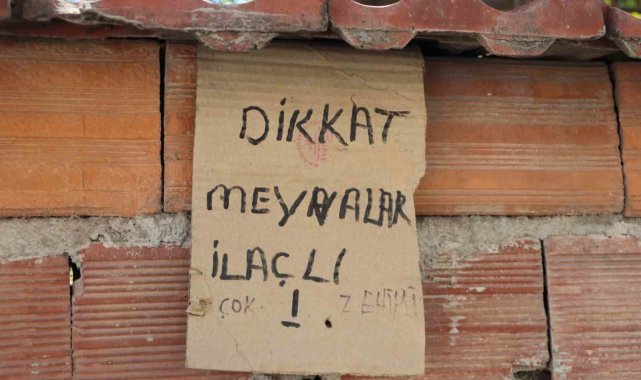 DİKKAT
MEYVALAR
İLAÇLI
ÇOK ! ZEHİRLİ